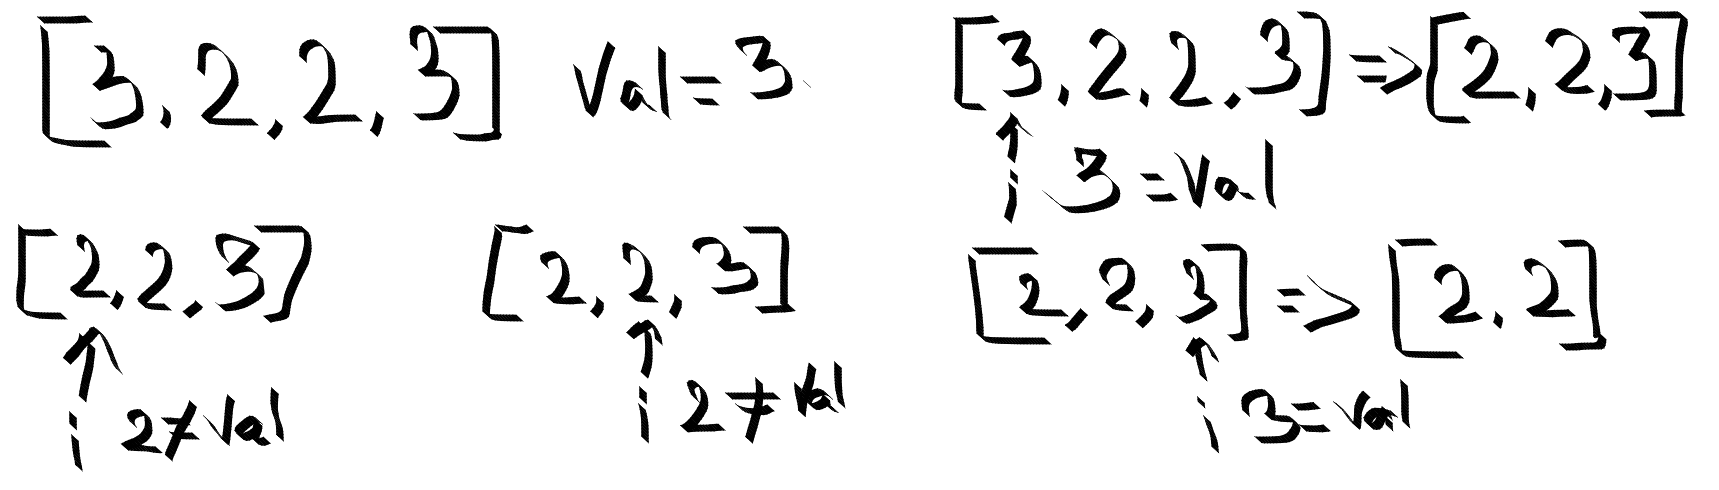 [3,2,2,3] Val=3
[3,2,2,3]=>[2,2,3]
i 3=Val
[2,2,3]
i 2≠Val
[2,2,3]
i 2≠Val
[2,2,3]=>[2,2]
i 3=Val